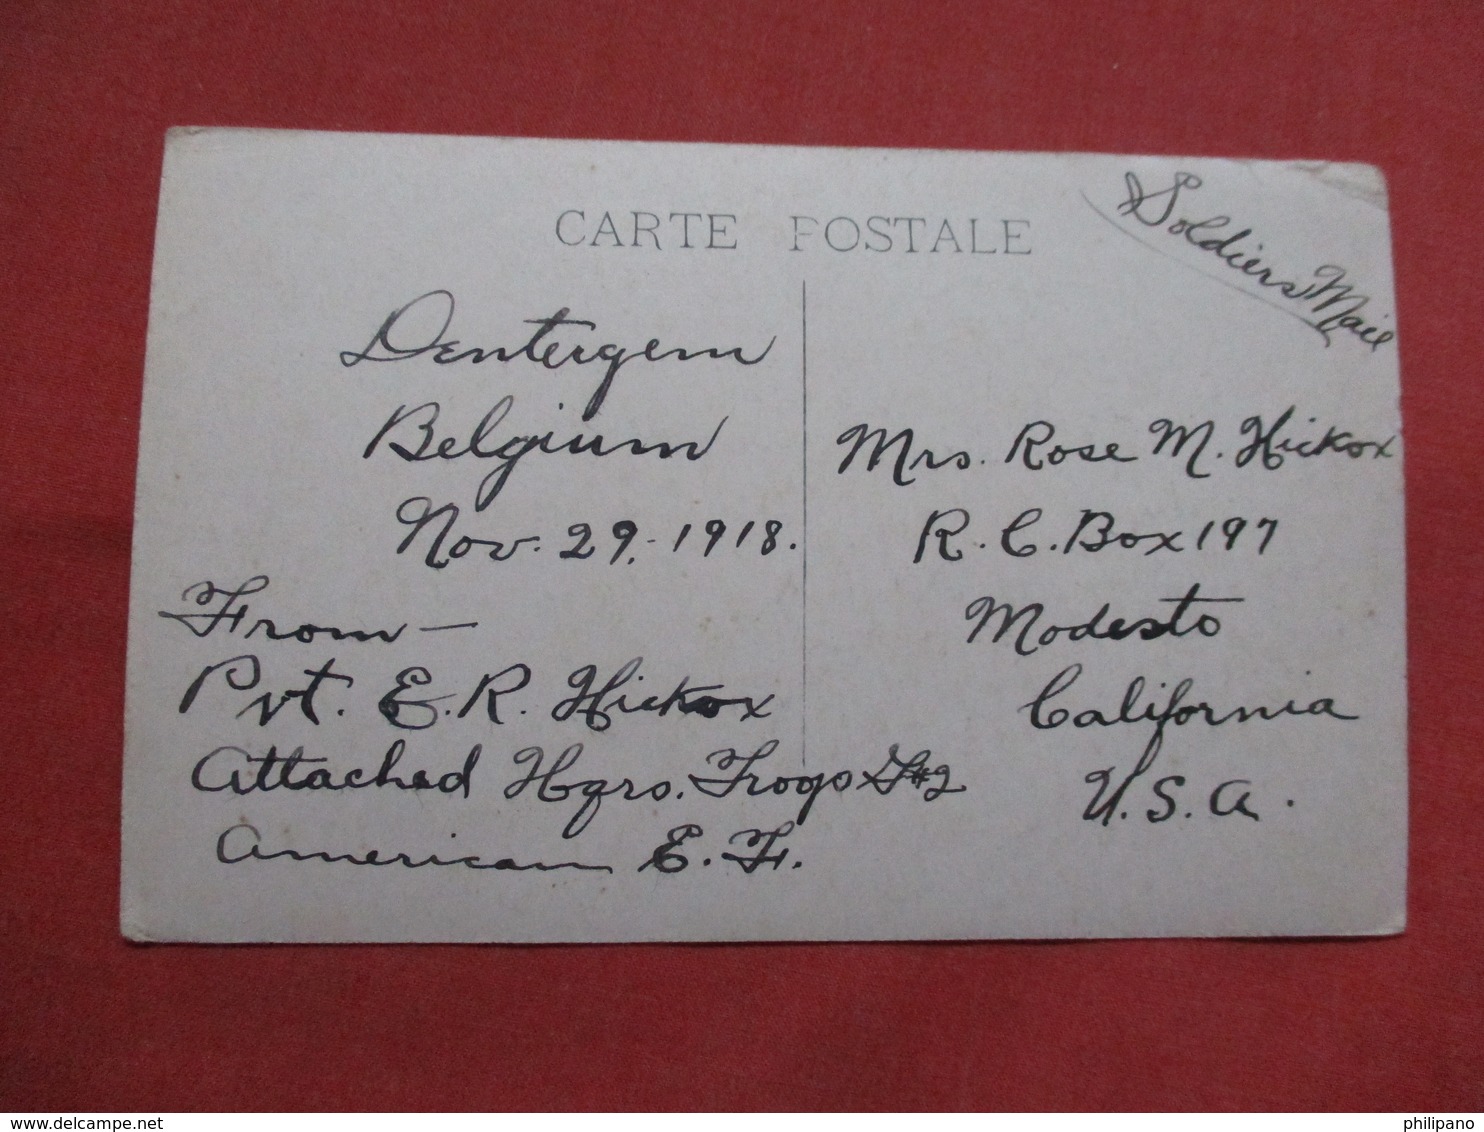 CARTE POSTALE
Soldiers Mail
Dentergem
Belgium
Nov. 29, - 1918.
From —
Pvt. E. R. Hickox
Attached Hqrs. #2
American E. F.
Mrs. Rose M. Hickox
R. C. Box 197
Modesto
California
U. S. A.
delcampe.net
philipano